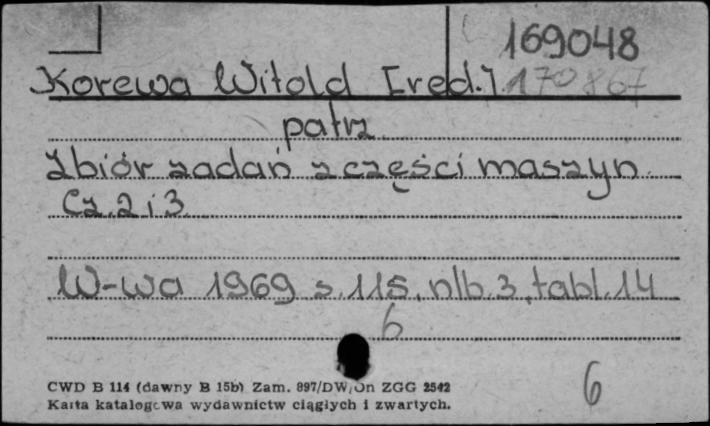 169048
Korewa Witold [red.] 170867
patrz
Zbiór zadań z części maszyn.
Cz. 2 i 3
W-wa 1969 s. 115, nlb. 3, tabl. 14
6
6
CWD B 114 (dawny B 15b) Zam. 897/DW/Dn ZGG 2542
Karta katalogowa wydawnictw ciągłych i zwartych.